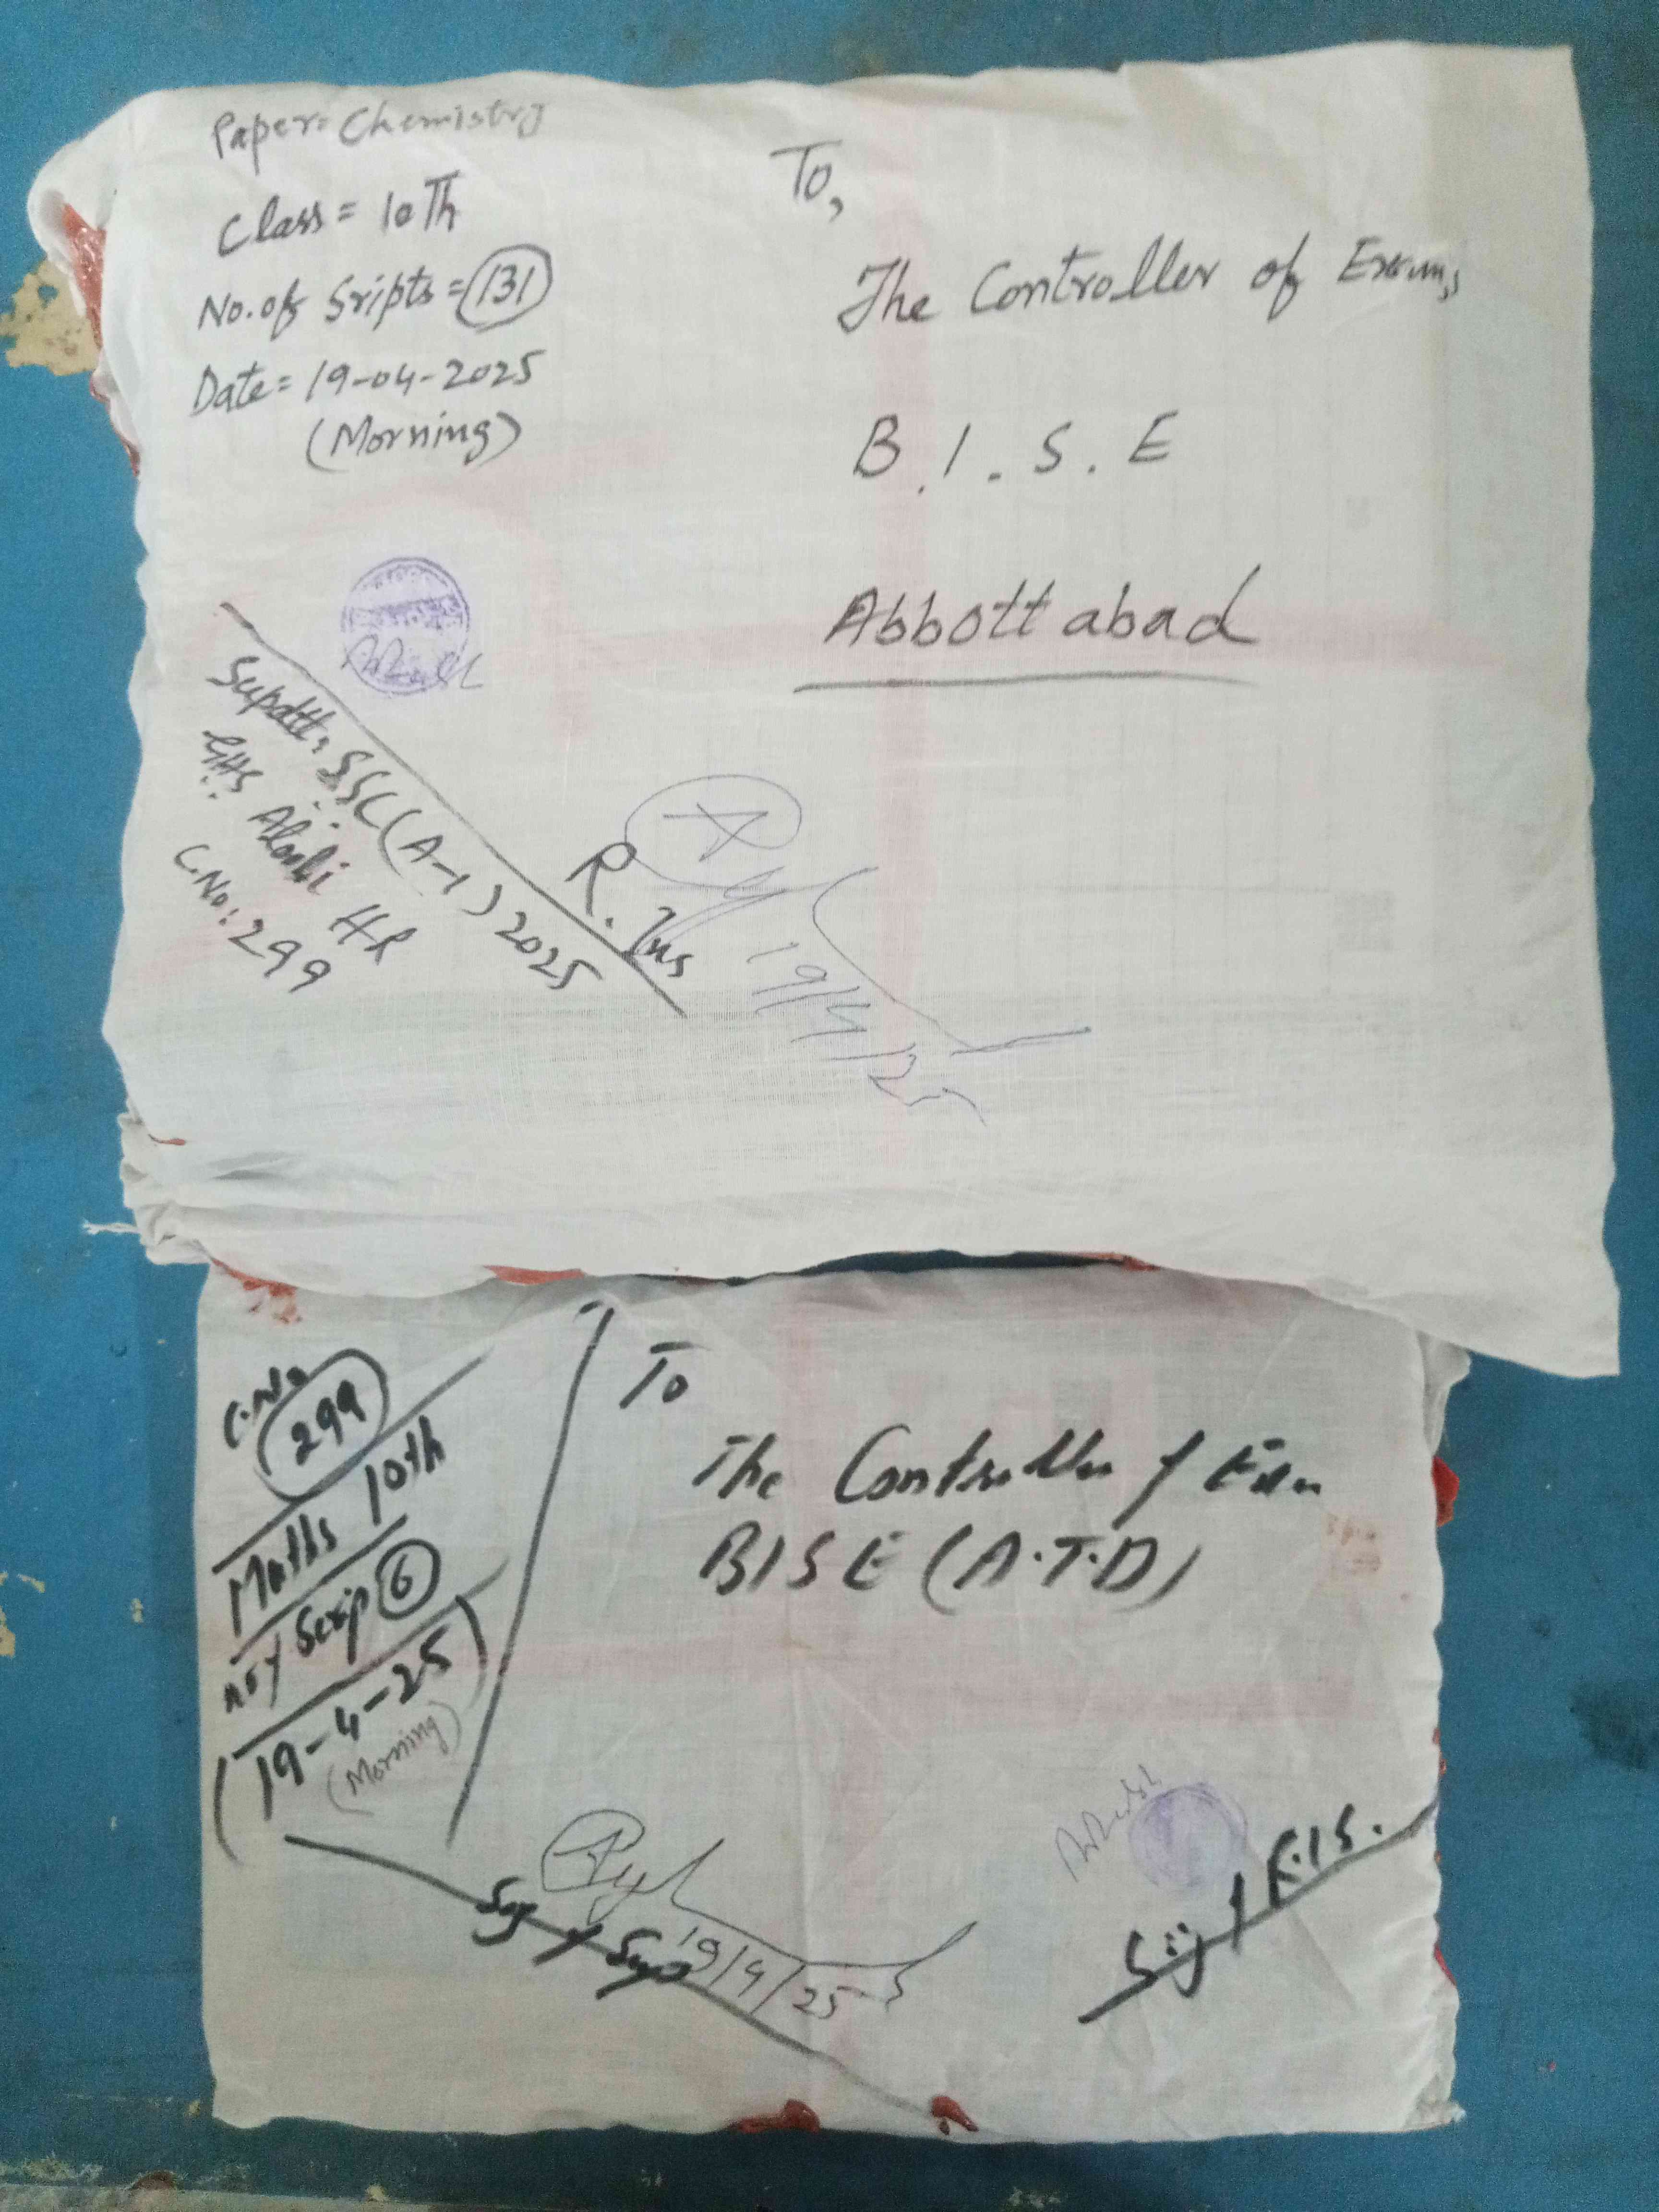 Paper= Chemistry
Class = 10Th
No. of Sripts = 131
Date = 19-04-2025
(Morning)
To,
The Controller of Exams
B.I.S.E
Abbottabad
Supdtt: SSC (A-1) 2025
GHS HR
C.No: 299
R. Ins
19/4/25
C.No
299
Maths 10th
no of Scrip 6
(19-4-25)
(Morning)
To
The Controller of Exam
BISE (A.T.D)
Sig of Sup
19/4/25
Sig of R.I.S.